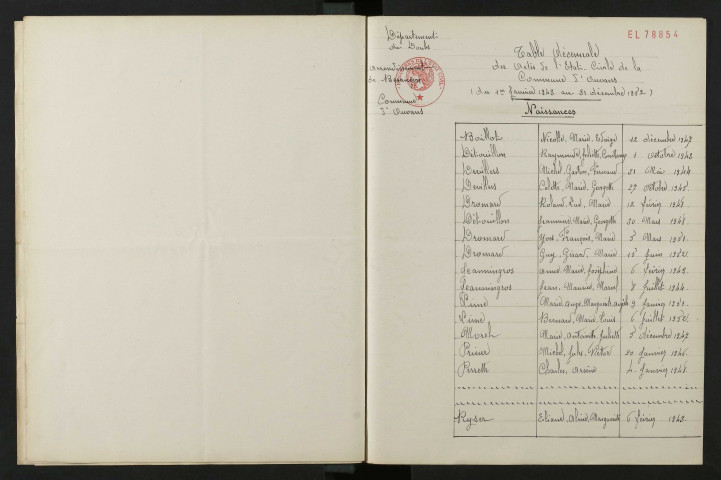 EL 78854
Département
du Doubs
arrondissement
de Besançon
Commune
d'Ouvans
Table Décennale
des Actes de l'Etat-Civil de la
Commune d'Ouvans
(du 1er Janvier 1943 au 31 décembre 1952)
Naissances
Bouillot Nicolle, Marie, 12 décembre 1947
Débouillon Raymonde, Juliette, 1 Octobre 1943
Devillers Michel, Gaston, Fernand 21 Mai 1944
Devillers Colette, Marie, Georgette 27 Octobre 1945
Dromard Roland, Luc, Marie 12 février 1948
Débouillon Jeannine, Marie, Georgette 30 Mars 1948
Dromard Yves, François, Marie 3 Mars 1951
Dromard Guy, Gérard, Marie 13 Juin 1952
Jeanningros Anne, Marie, Joséphine 6 février 1943
Jeanningros Jean, Maurice, Marcel 8 Juillet 1944
Lime Marie, Ange, Marguerite, 9 Janvier 1951
Lime Bernard, Marie, Louis 6 Juillet 1952
Morel Marie, Antoinette, Juliette 3 décembre 1947
Prieur Michel, Jules, Victor 20 Janvier 1946
Perrette Charles, Arsène 4 Janvier 1948
Kyser Eliane, Marguerite 6 février 1943